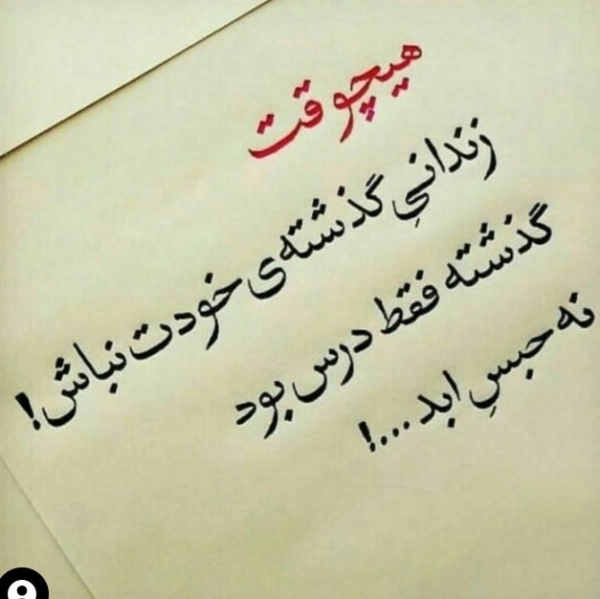 هیچوقت
زندانیِ گذشته‌ی خودت نباش!
گذشته فقط درس بود
نه حبسِ ابد...!